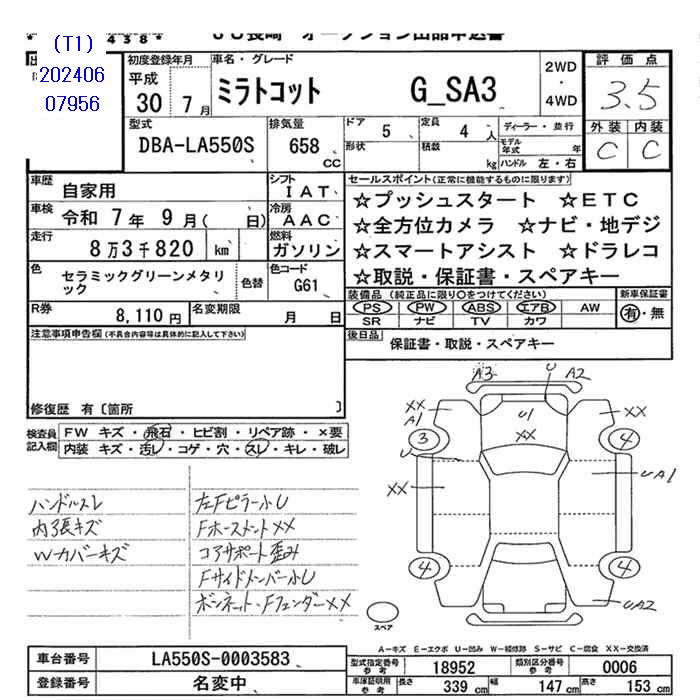 (T1)
202406
07956
438*
JU長崎 オークション出品申込書
初度登録年月
平成
30 7月
車名・グレード
ミラトコット G_SA3
2WD
・
4WD
評価点
3.5
外装 内装
C C
型式
DBA-LA550S
排気量
658 CC
ドア 5
形状
定員 4 人
積載 kg
ディーラー・並行
モデル年式 年
ハンドル 左・右
車歴 自家用
シフト IAT
車検 令和 7年 9月( 日)
冷房 AAC
走行 8万3千820 km
燃料 ガソリン
色 セラミックグリーンメタリック
色替
色コード G61
R券 8,110円
名変期限 月 日
セールスポイント(正常に機能するものに限ります)
☆プッシュスタート ☆ETC
☆全方位カメラ ☆ナビ・地デジ
☆スマートアシスト ☆ドラレコ
☆取説・保証書・スペアキー
装備品(純正品に限り○をつけてください)
PS PW ABS エアB AW
SR ナビ TV カワ
新車保証書
有・無
後日品 保証書・取説・スペアキー
注意事項申告欄(不具合内容等は具体的に記入して下さい)
修復歴 有〔箇所 〕
検査員記入欄
FW キズ・飛石・ヒビ割・リペア跡・×要
内装 キズ・汚レ・コゲ・穴・スレ・キレ・破レ
ハンドルスレ
内張キズ
Wカバーキズ
左Fピラー小U
Fホースメント××
コアサポート歪み
Fサイドメンバー小U
ボンネット・Fフェンダー××
A3 U A2
XX
A1
U1
XX
XX
3 4
U
XX
UA1
4 4
UA2
スペア
A-キズ E-エクボ U-凹み W-補修跡 S-サビ C-腐食 XX-交換済
車台番号 LA550S-0003583
登録番号 名変中
型式指定番号 参考 18952
類別区分番号 参考 0006
車庫証明用 参考 長さ 339cm 幅 147cm 高さ 153cm